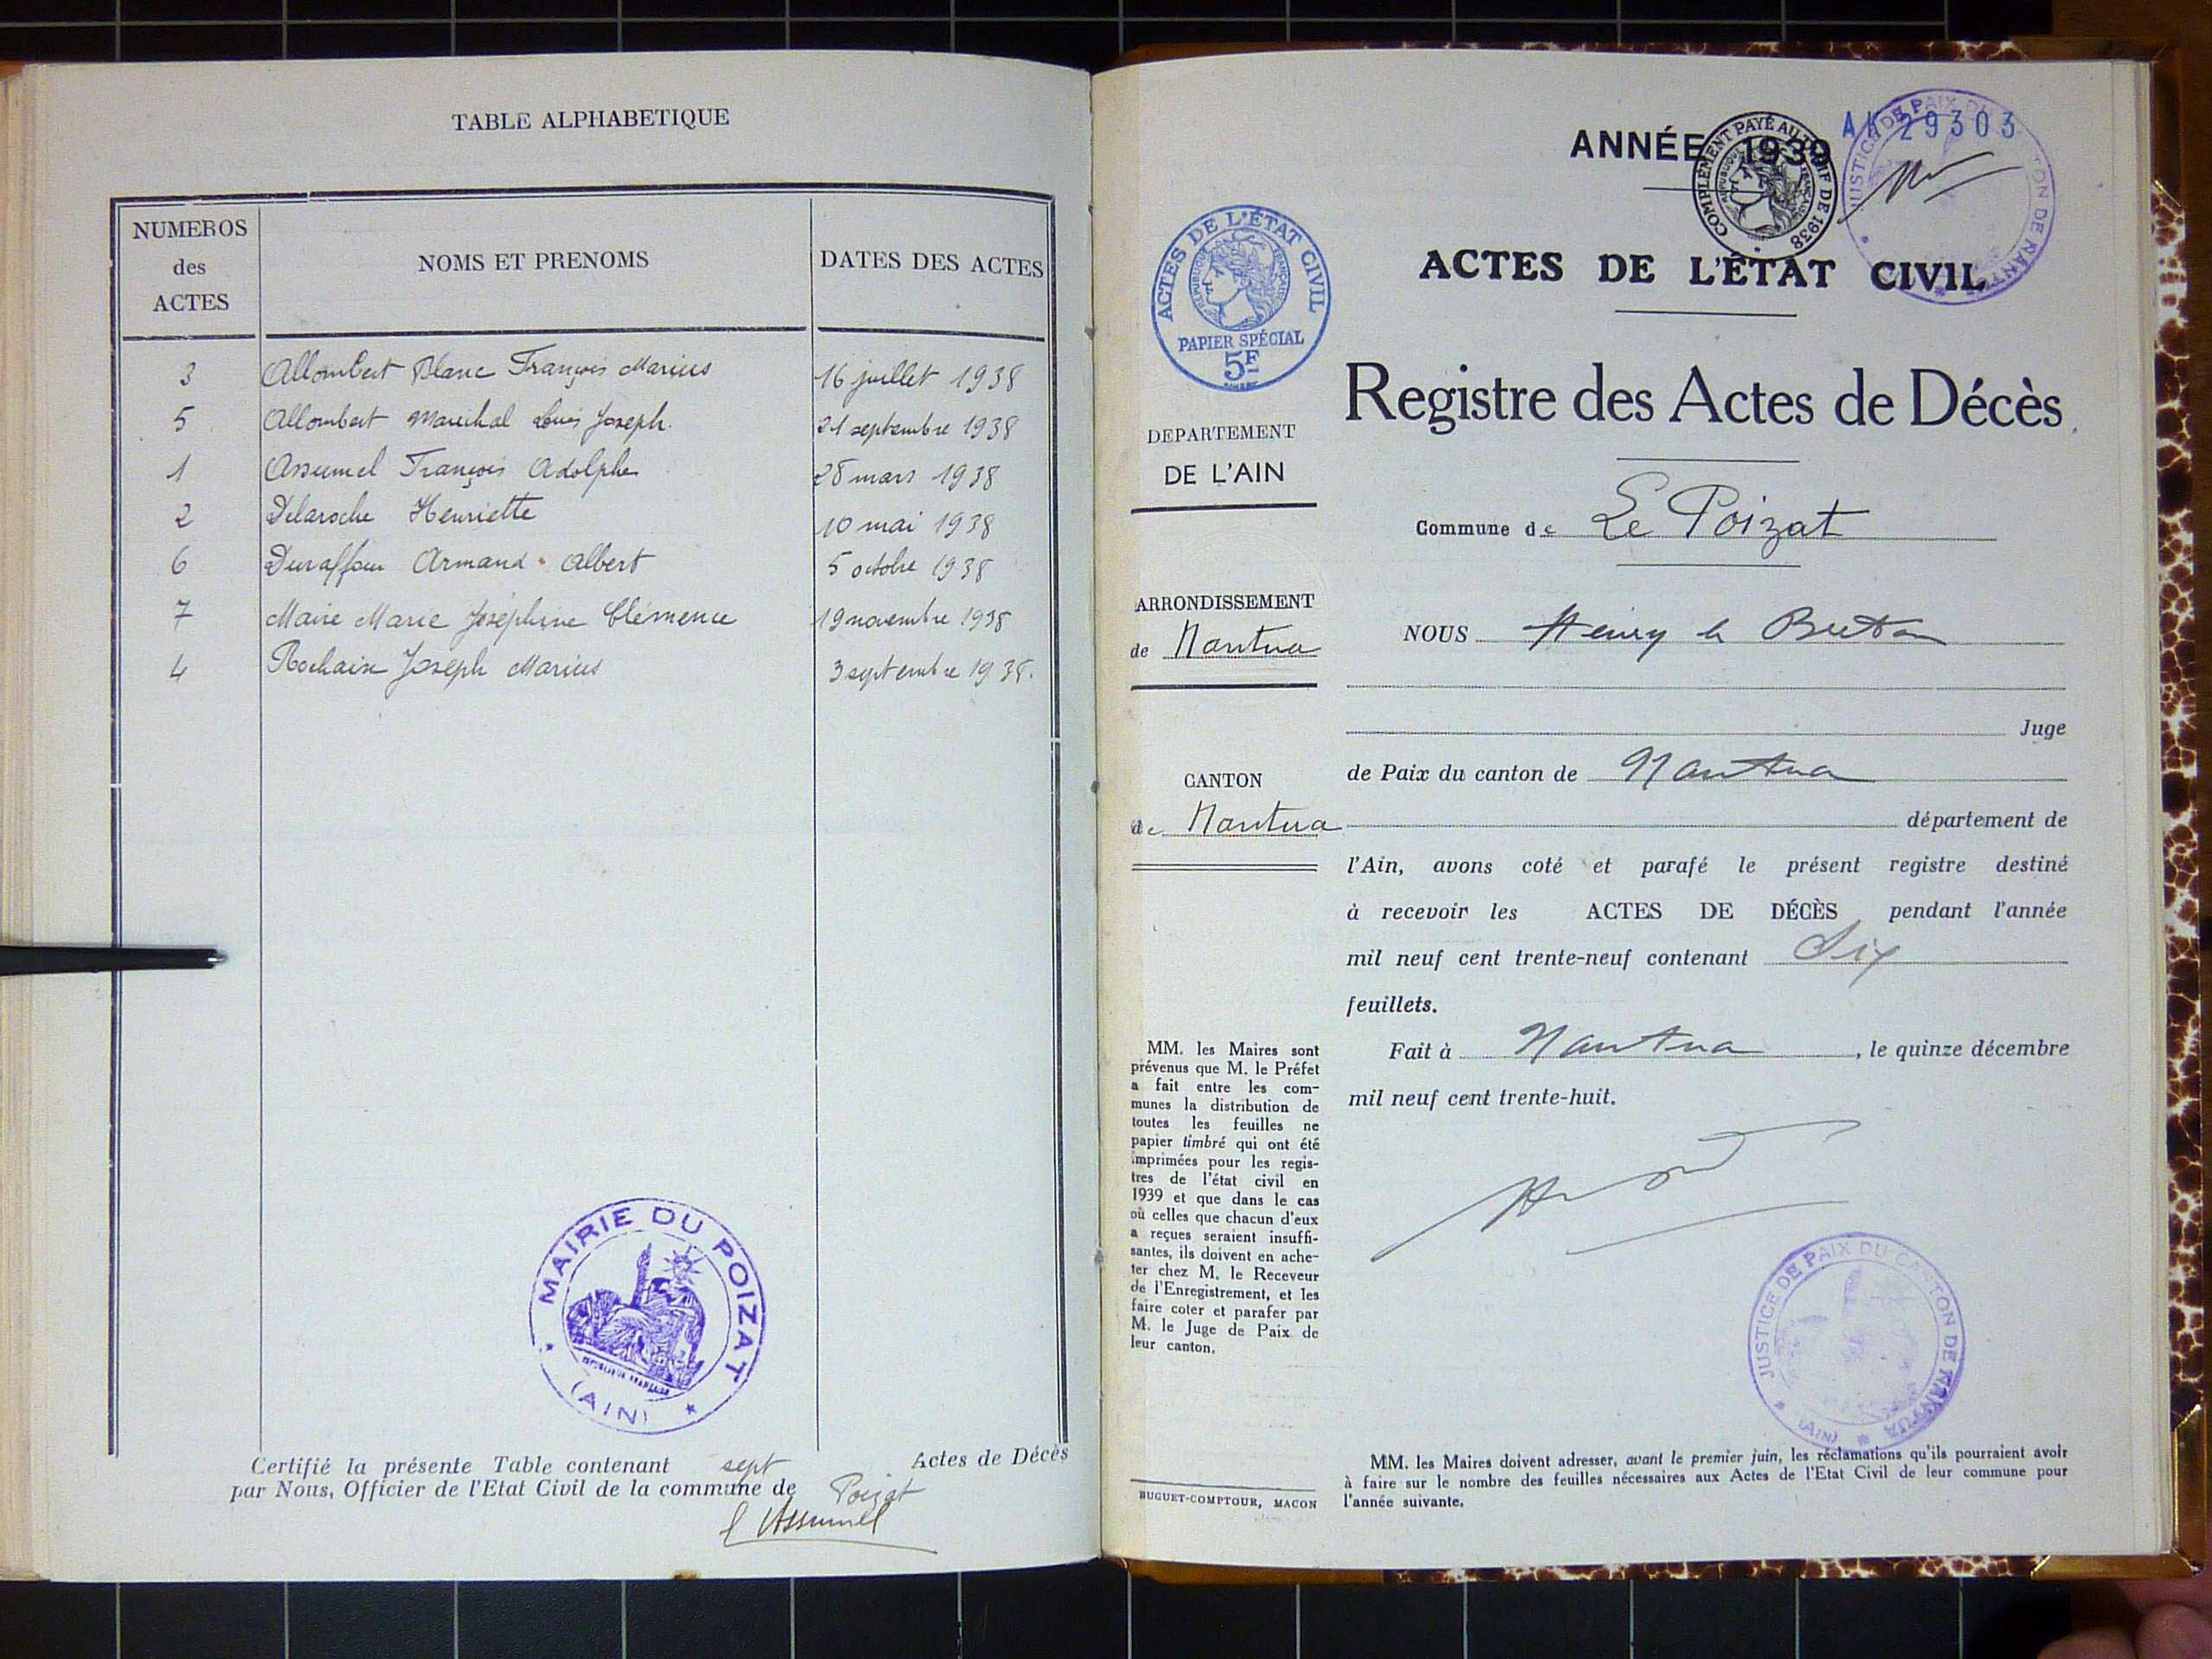 TABLE ALPHABETIQUE
NUMEROS des ACTES
NOMS ET PRENOMS
DATES DES ACTES
3 Allombert Blanc François Marius 16 juillet 1938
5 Allombert Marechal Louis Joseph. 21 septembre 1938
1 Assumel François Adolphe 28 mars 1938
2 Delaroche Henriette 10 mai 1938
6 Duraffour Armand Albert 5 octobre 1938
7 Maire Marie Joséphine Clémence 19 novembre 1938
4 Rochaix Joseph Marius 3 septembre 1938.
MAIRIE DU POIZAT
REPUBLIQUE FRANÇAISE
(AIN)
Certifié la présente Table contenant sept Actes de Décès
par Nous, Officier de l'Etat Civil de la commune de Poizat
Assumel
ANNÉE 1939
COMPLÉMENT PAYÉ AU TARIF DE 1938
AK 29303
JUSTICE DE PAIX DU CANTON DE NANTUA
ACTES DE L'ÉTAT CIVIL
RÉPUBLIQUE FRANÇAISE
PAPIER SPÉCIAL
5F
ACTES DE L'ÉTAT CIVIL
Registre des Actes de Décès
DEPARTEMENT
DE L'AIN
Commune de Le Poizat
ARRONDISSEMENT
de Nantua
NOUS Henry le Breton
Juge
CANTON
de Nantua
de Paix du canton de Nantua
département de
l'Ain, avons coté et parafé le présent registre destiné
à recevoir les ACTES DE DÉCÈS pendant l'année
mil neuf cent trente-neuf contenant Six
feuillets.
Fait à Nantua, le quinze décembre
mil neuf cent trente-huit.
MM. les Maires sont
prévenus que M. le Préfet
a fait entre les com-
munes la distribution de
toutes les feuilles ne
papier timbré qui ont été
imprimées pour les regis-
tres de l'état civil en
1939 et que dans le cas
où celles que chacun d'eux
a reçues seraient insuffi-
santes, ils doivent en ache-
ter chez M. le Receveur
de l'Enregistrement, et les
faire coter et parafer par
M. le Juge de Paix de
leur canton.
JUSTICE DE PAIX DU CANTON DE NANTUA
(AIN)
BUGUET-COMPTOUR, MACON
MM. les Maires doivent adresser, avant le premier juin, les réclamations qu'ils pourraient avoir
à faire sur le nombre des feuilles nécessaires aux Actes de l'Etat Civil de leur commune pour
l'année suivante.